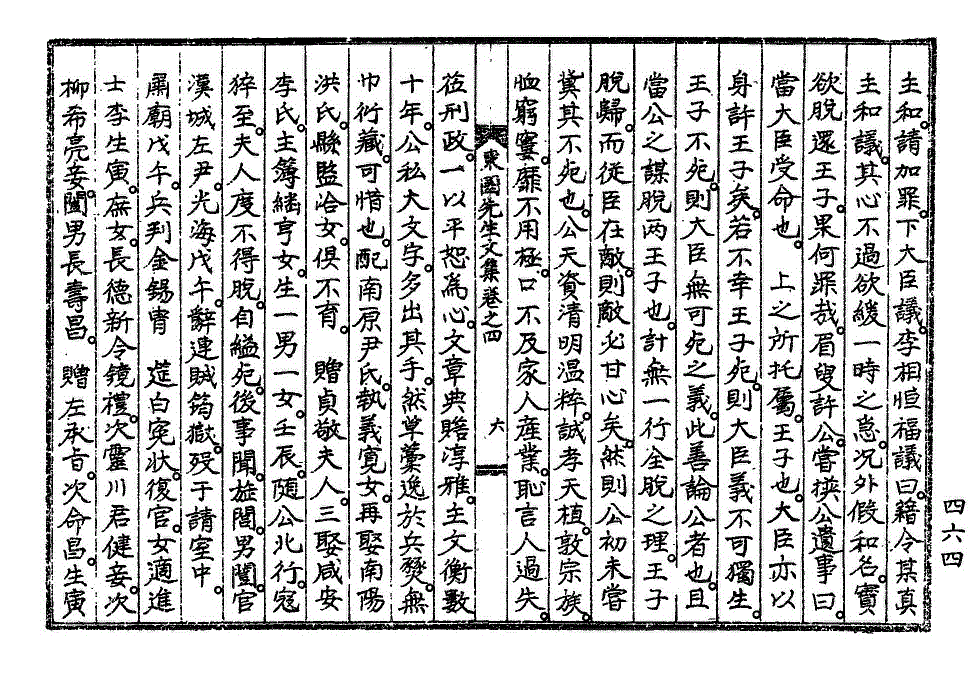 主和。請加罪。下大臣議。李相恒福議曰。籍令某眞
主和議。其心不過欲緩一時之急。況外假和名。實
欲脫還王子。果何罪哉。眉叟許公。嘗撰公遺事曰。
當大臣受命也。 上之所托屬。王子也。大臣亦以
身許王子矣。若不幸王子死。則大臣義不可獨生。
王子不死。則大臣無可死之義。此善論公者也。且
當公之謀脫兩王子也。計無一行全脫之理。王子
脫歸。而從臣在敵。則敵必甘心矣。然則公初未嘗
冀其不死也。公天資淸明溫粹。誠孝天植。敦宗族。
恤窮窶。靡不用極。口不及家人產業。恥言人過失。
東園先生文集卷之四 六
莅刑政。一以平恕爲心。文章典贍淳雅。主文衡數
十年。公私大文字。多出其手。然草藁逸於兵燹。無
巾衍藏。可惜也。配南原尹氏。執義寬女。再娶南陽
洪氏。縣監洽女。俱不育。 贈貞敬夫人。三娶咸安
李氏。主簿緇亨女。生一男一女。壬辰。隨公北行。寇
猝至。夫人度不得脫。自縊死。後事聞。㫌閭。男誾。官
漢城左尹。光海戊午。辭連賊筠獄。歿于請室中。
肅廟戊午。兵判金錫胄 筵白寃狀。復官。女適進
士李生寅。庶女。長德新令鏡禮。次靈川君健妾。次
柳希亮妾。誾男長壽昌。 贈左承旨。次命昌。生寅
四六四